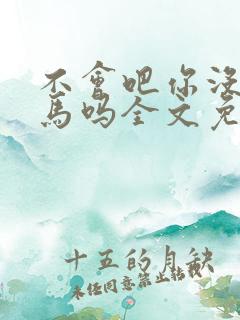 不會吧你没
馬吗全文免
十五的月缺
未经同意禁止转载